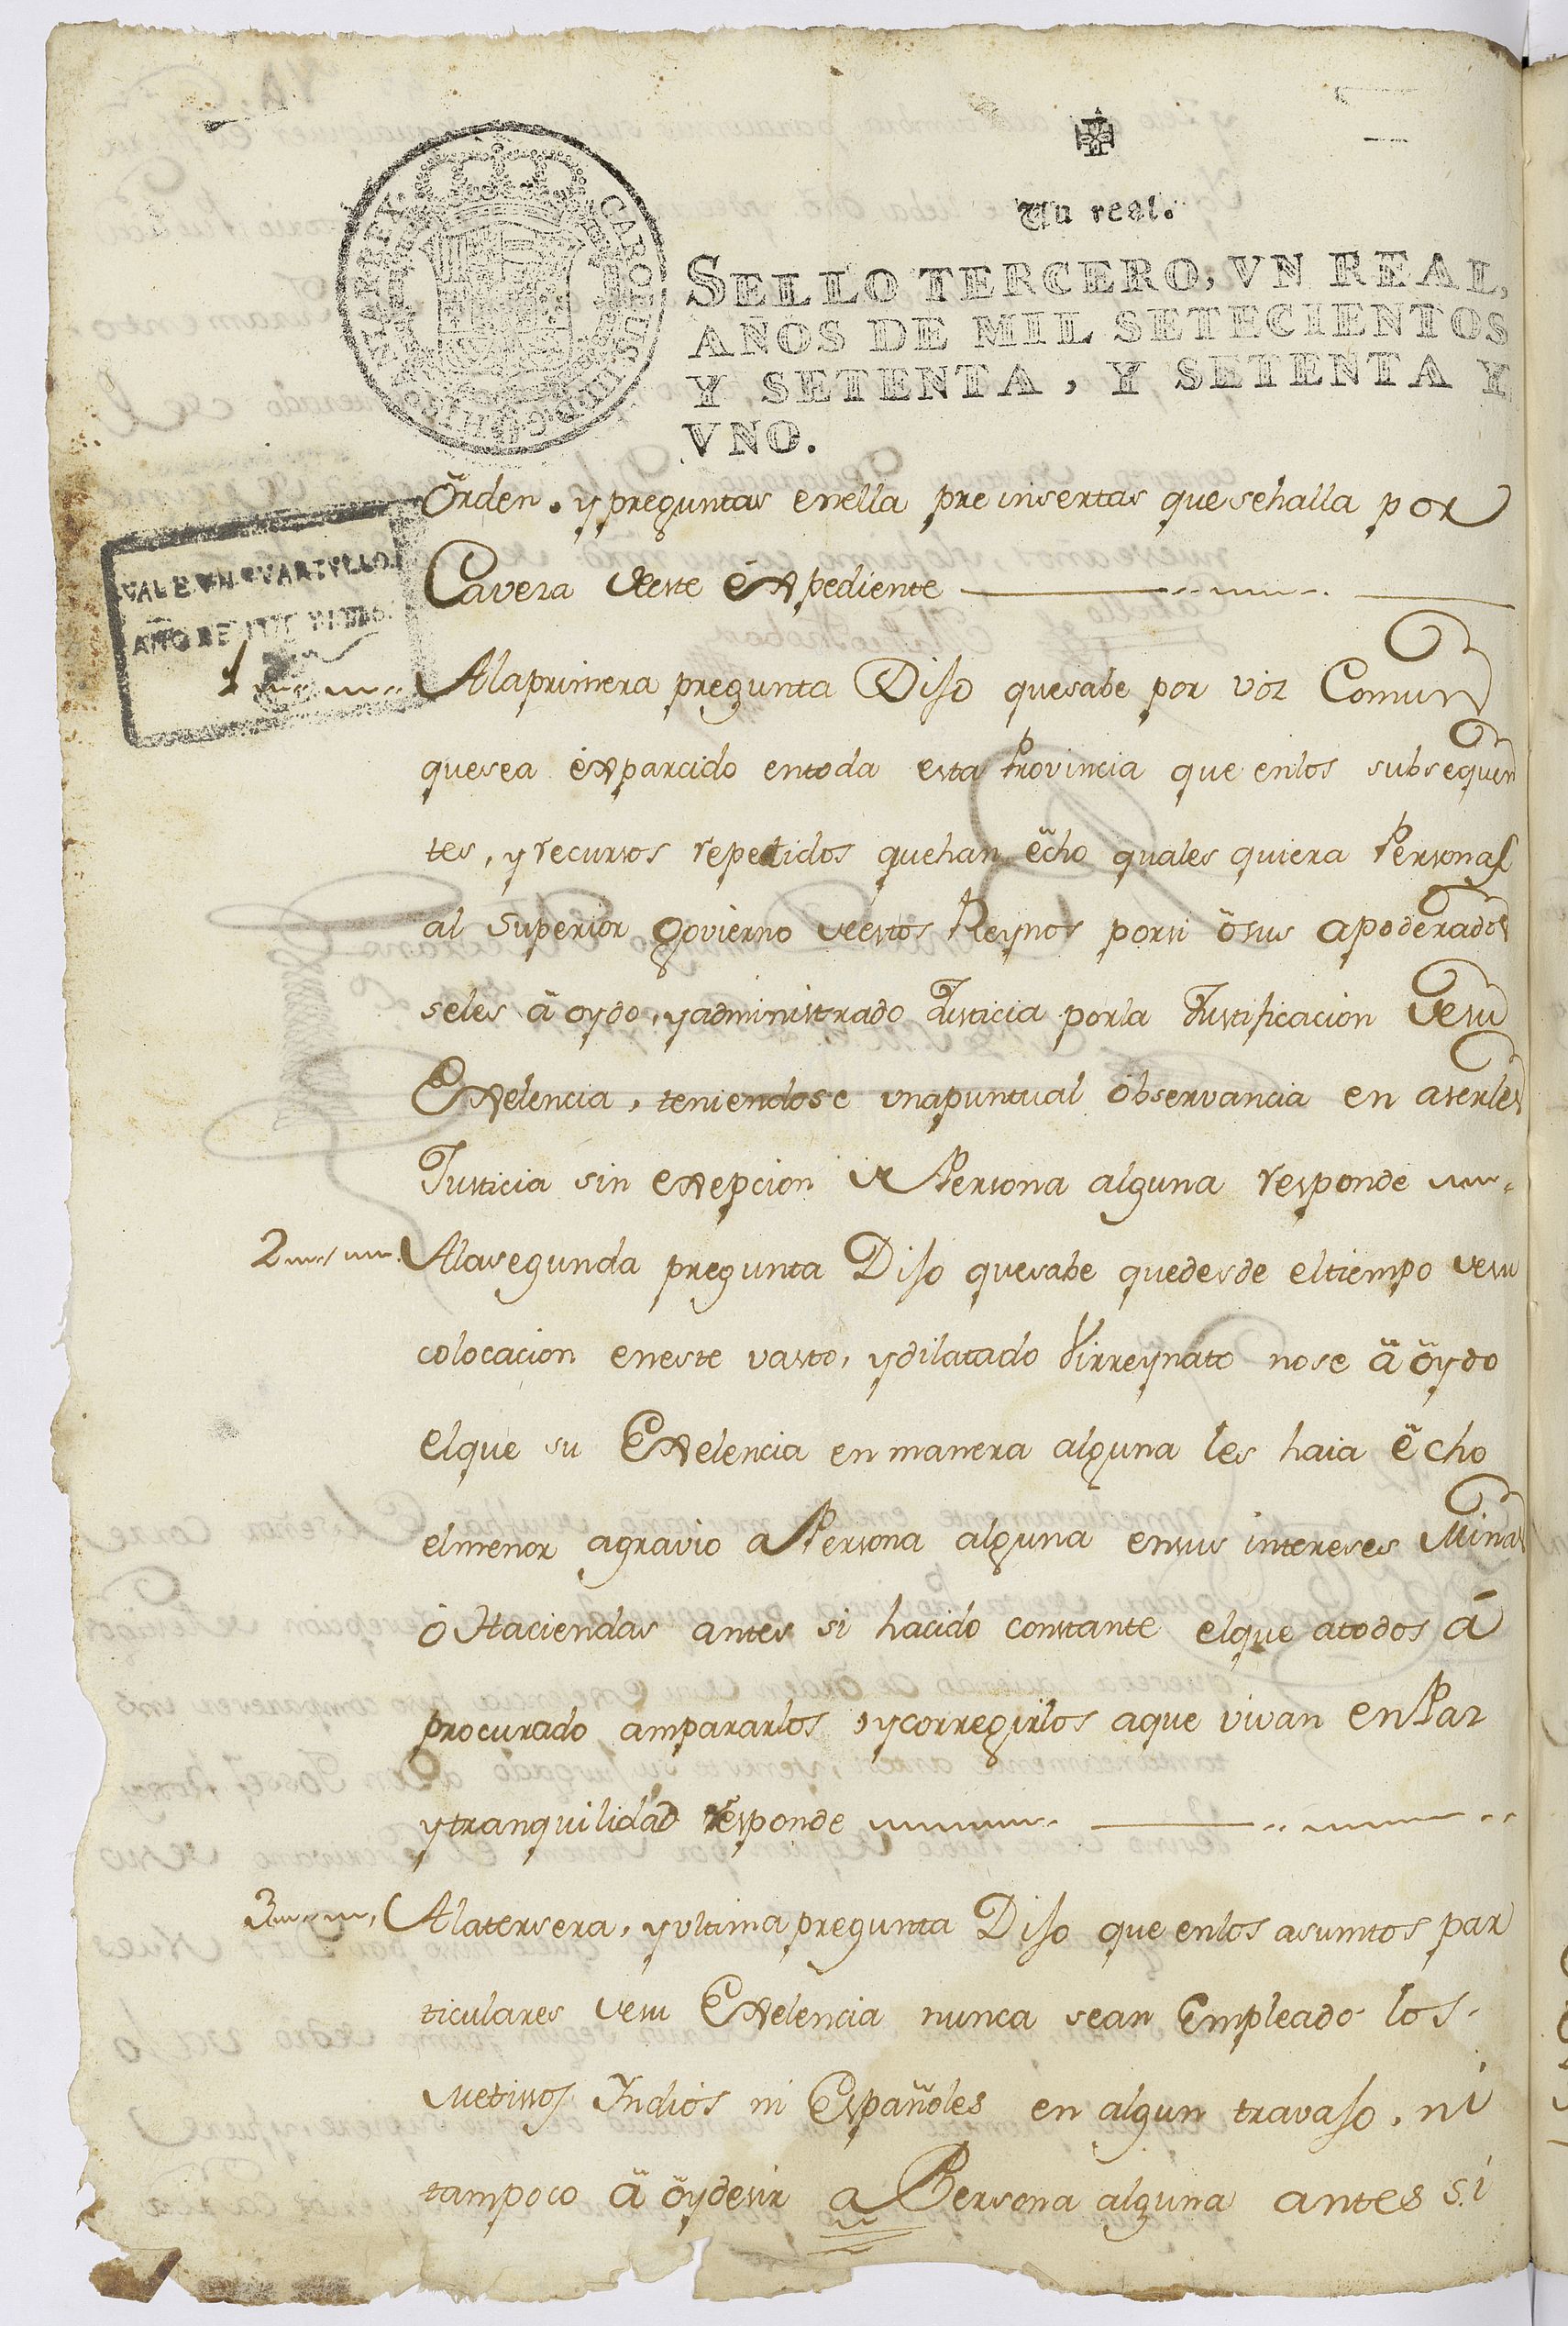 Un real.
SELLO TERCERO, VN REAL,
AÑOS DE MIL SETECIENTOS
Y SETENTA, Y SETENTA Y
VNO.
VALE VN QVARTILLO
Orden. y preguntas enella pre insertas quesehalla por
Cavera deeste éxpediente
1 Alaprimera pregunta Dijo quesabe por voz Comun
quesea éxparcido entoda esta Provincia que enlos subsequen
tes, y recursos repetidos quehan echo quales quiera Personas
al Superior govierno deestos Reynos porsi ösus apoderados
seles ä oydo, yadministrado Justicia porla Justificacion desu
Exelencia, teniendose unapuntual observancia en aserles
Justicia sin exepcion de Persona alguna responde
2 Alasegunda pregunta Dijo quesabe quedesde eltiempo desu
colocacion eneste vasto, ydilatado Virreynato nose ä öydo
elque su Exelencia en manera alguna les haia ëcho
elmenor agravio a Persona alguna ensus intereses Minas
ó Haciendas antes si hacido constante elque atodos á
procurado ampararlos, ycorregirlos aque vivan enPaz
ytranquilidad responde
3 Alatersera, yultima pregunta Dijo que enlos asuntos par
ticulares desu Exelencia nunca sean Empleado los
Metissos Yndios ni Españoles en algun travajo, ni
tampoco ä öydesir a Persona alguna antes si